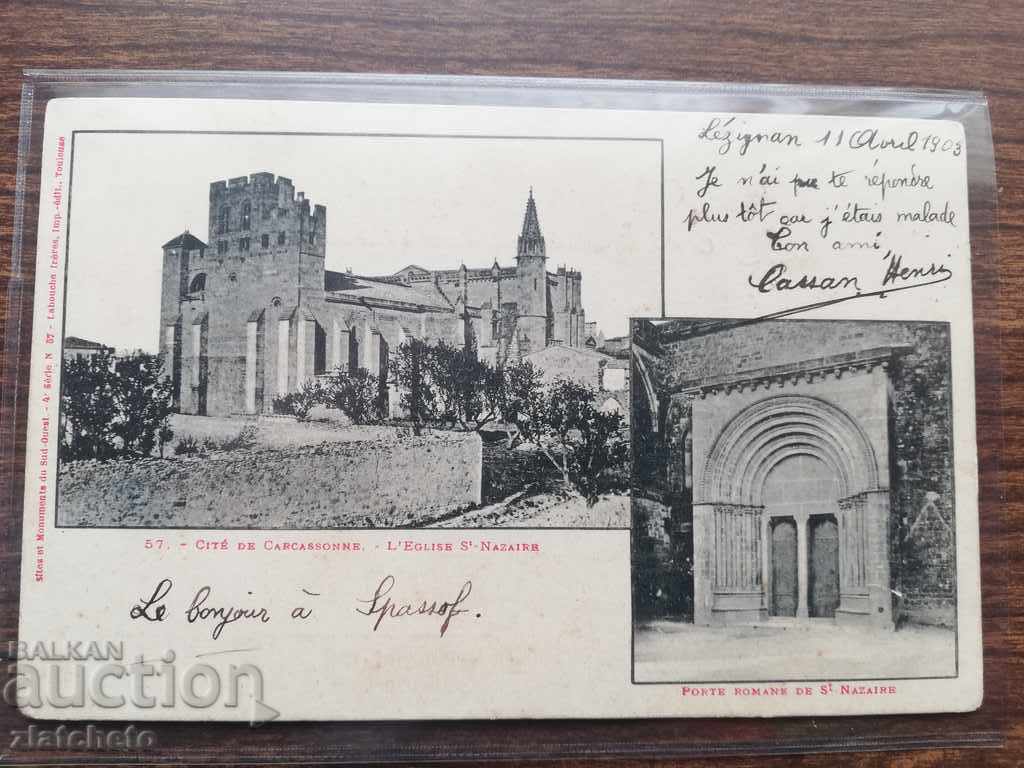 Lézignan 11 Avril 1903
Je n'ai pu te répondre
plus tôt car j'étais malade
Ton ami,
Cassan Henri
Sites et Monuments du Sud-Ouest. - 4e Série. N 57 - Labouche frères, Imp.-édit., Toulouse
57. - CITÉ DE CARCASSONNE. - L'EGLISE St-NAZAIRE
Le bonjour à Spassof.
PORTE ROMANE DE St NAZAIRE
BALKAN
auction
zlatcheto